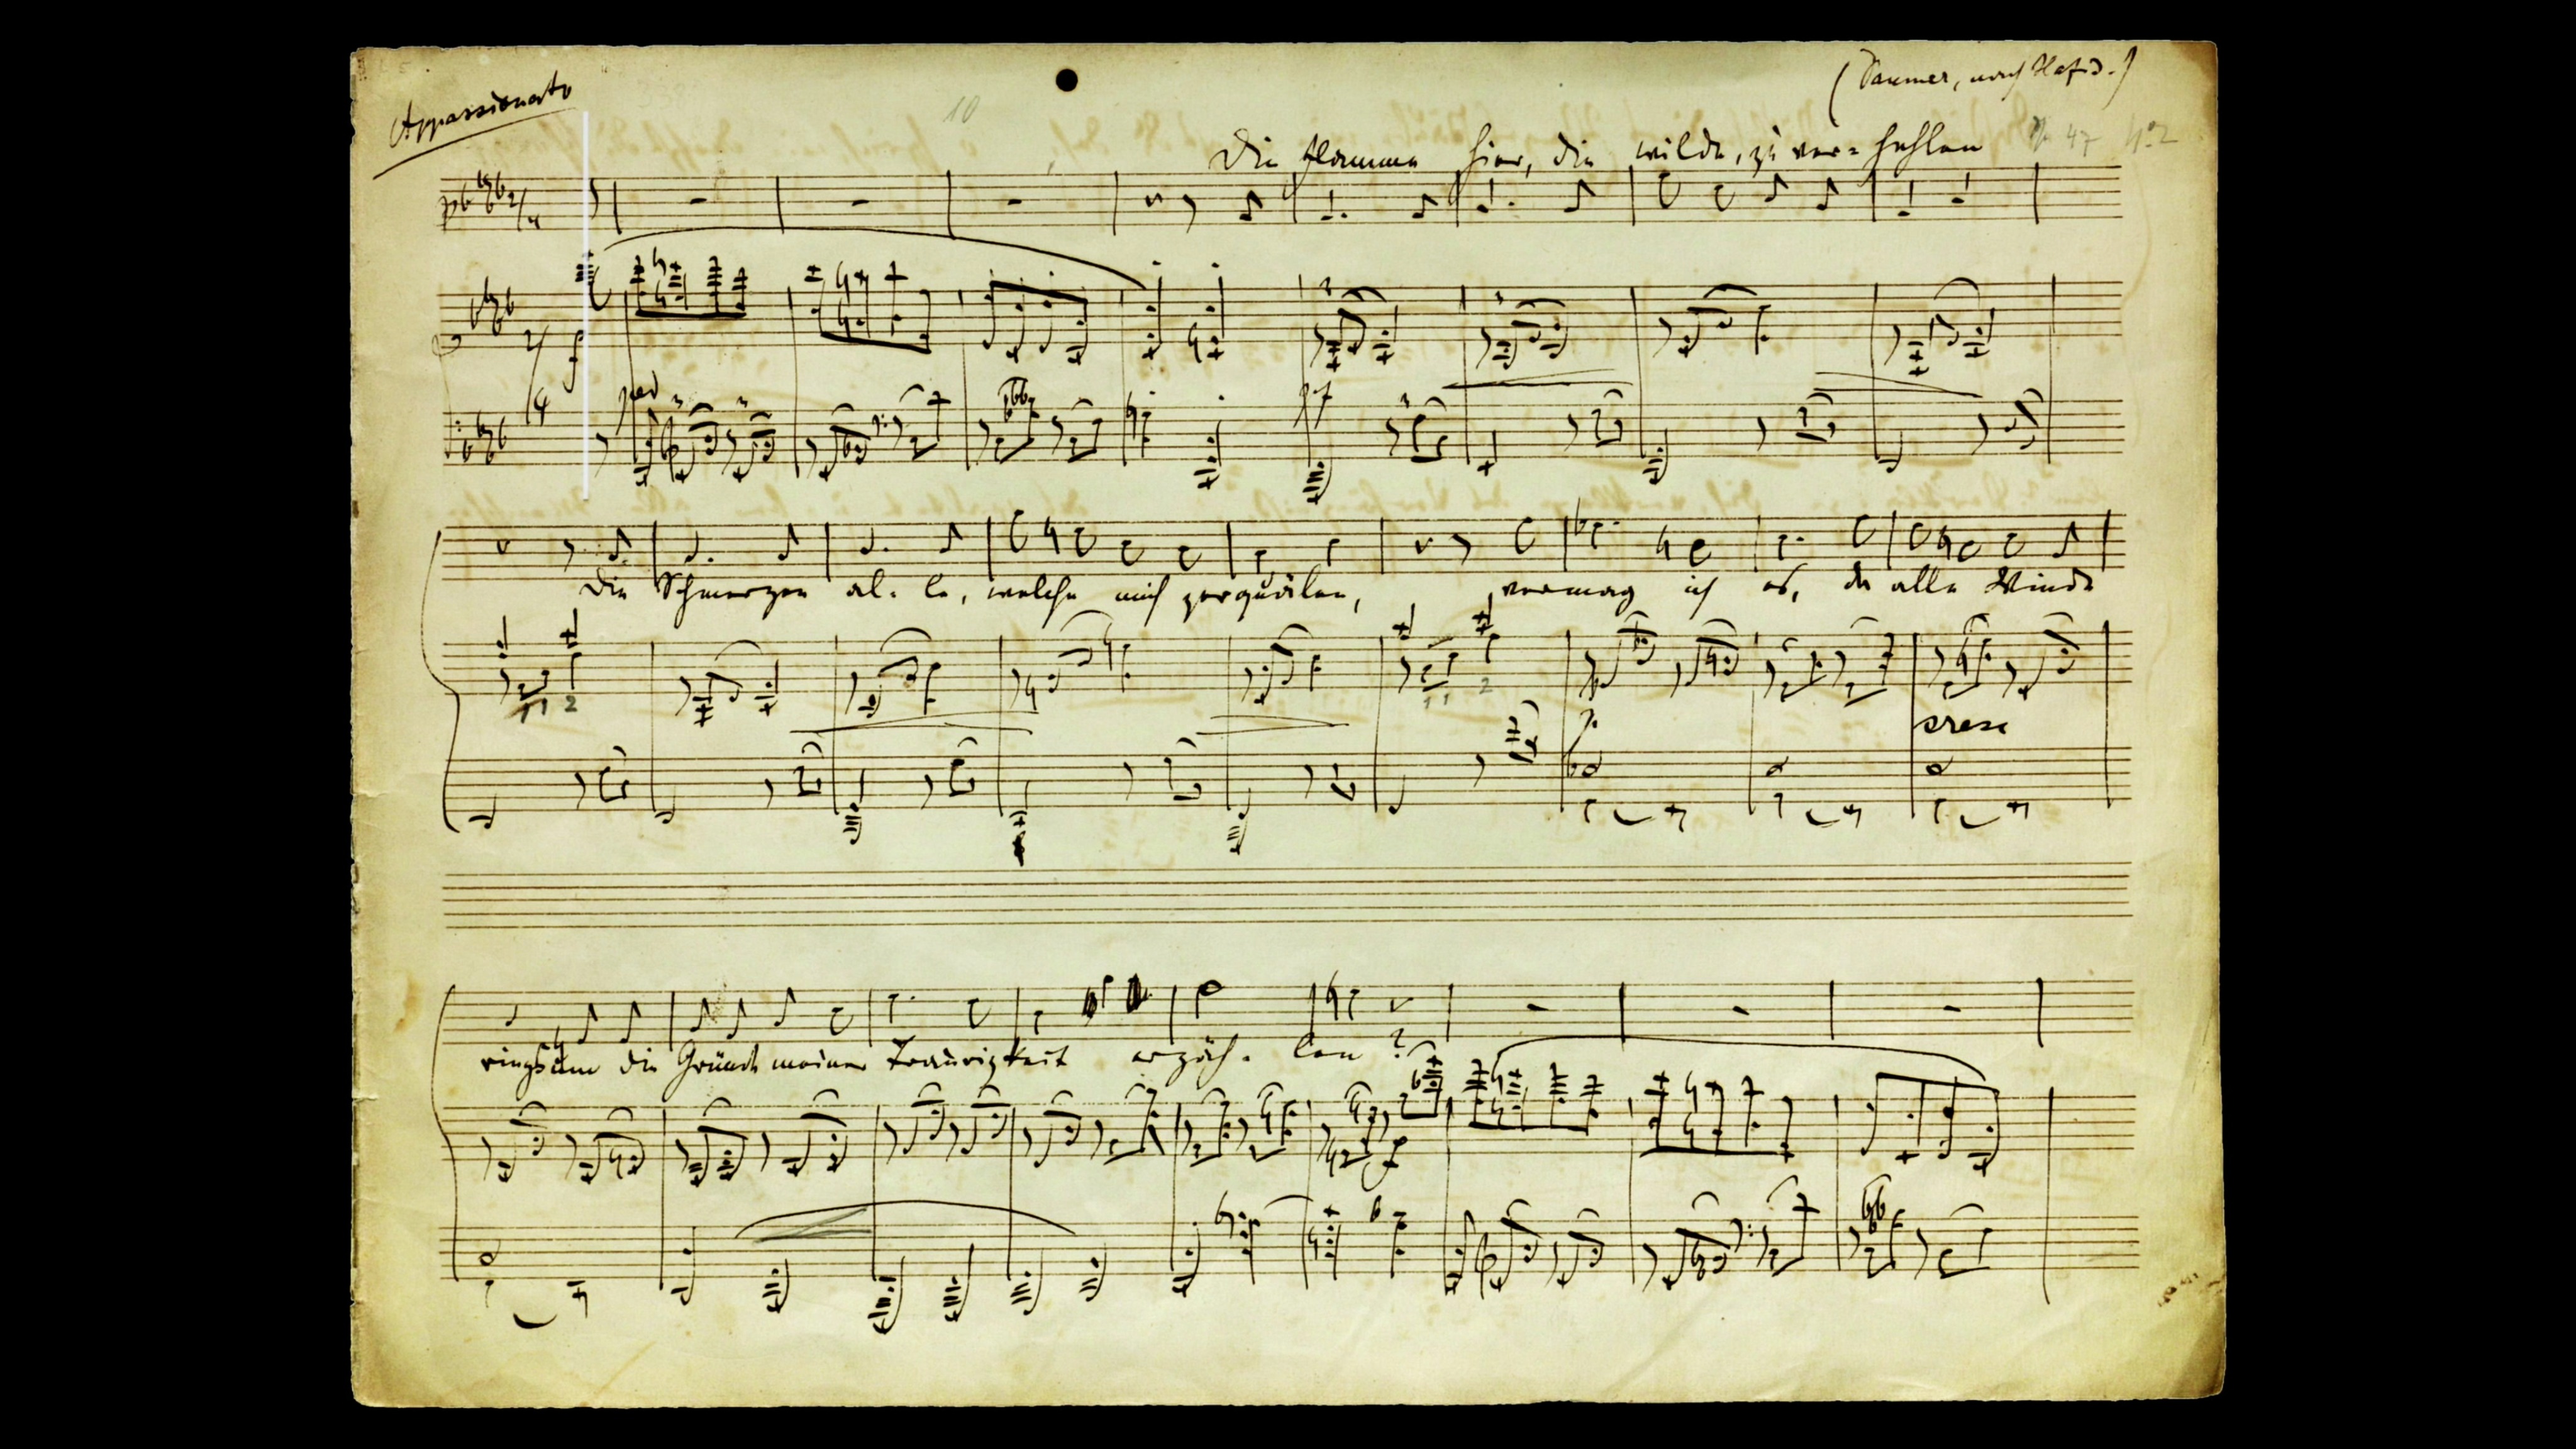 Appassionato
(Daumer, nach Hafis.)
10
Op. 47 No 2
Die Flamme hier, die wilde, zu ver= hehlen
2/4
f
ped
2/4
pf
Die Schmerzen al- le, welche mich zerquälen,
vermag ich es, da alle Winde
1 1 2
1 1 2
p.
cresc
ringsum die Gründe meiner Traurigkeit erzäh- len?
f